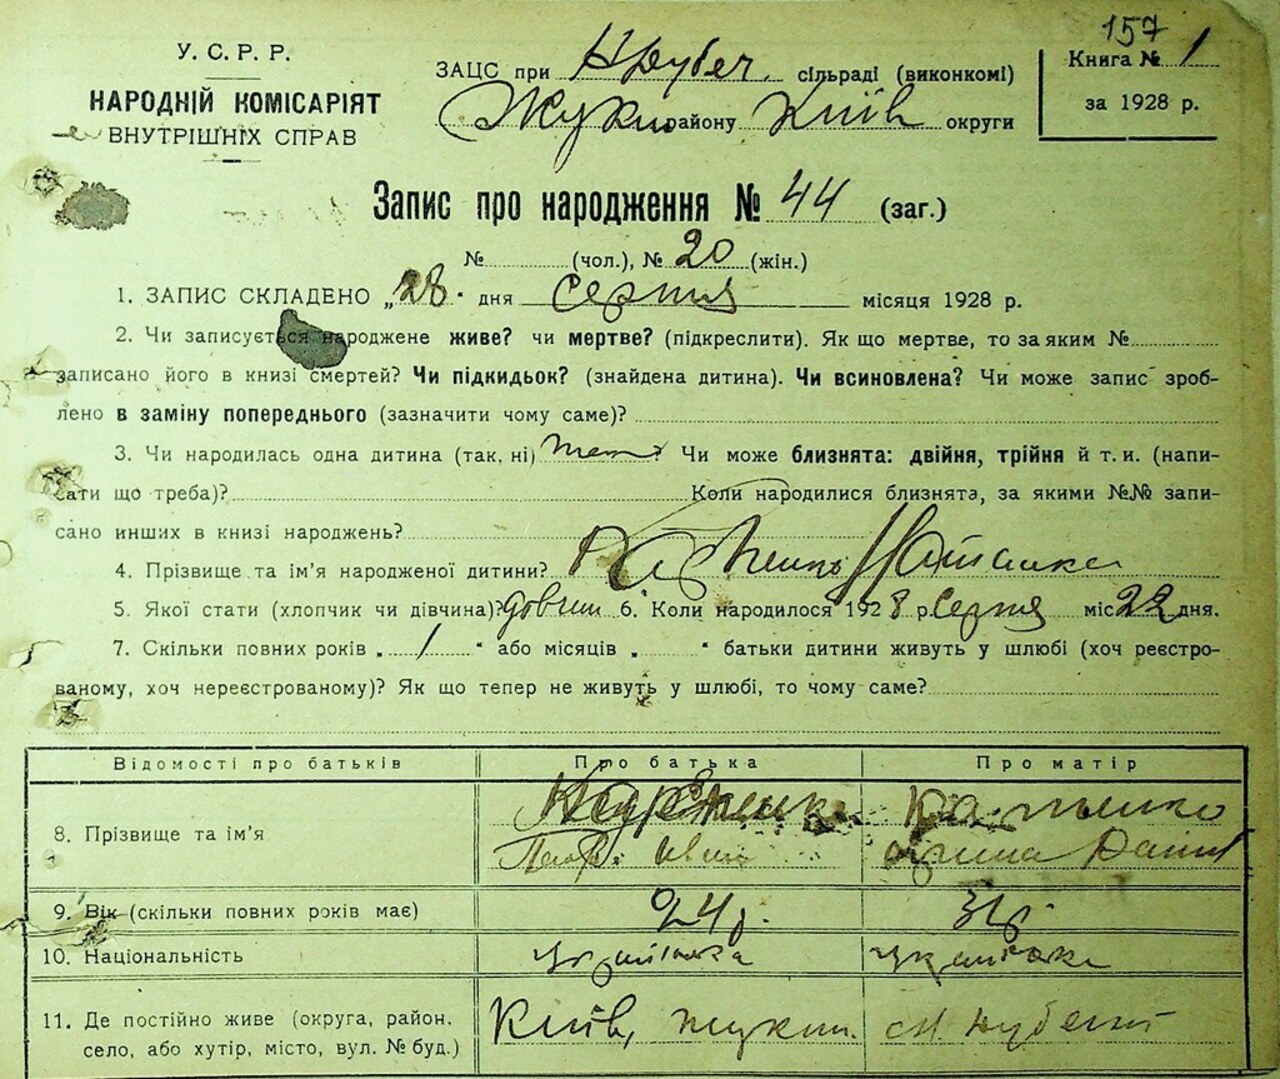 157
У. С. Р. Р.
НАРОДНІЙ КОМІСАРІЯТ
ВНУТРІШНІХ СПРАВ
ЗАЦС при сільраді (виконкомі)
Жукин району Київ округи
Книга № 1
за 1928 р.
Запис про народження № 44 (заг.)
№ (чол.), № 20 (жін.)
1. ЗАПИС СКЛАДЕНО „28" дня серпня місяця 1928 р.
2. Чи записується народжене живе? чи мертве? (підкреслити). Як що мертве, то за яким №
записано його в книзі смертей? Чи підкидьок? (знайдена дитина). Чи всиновлена? Чи може запис зроб-
лено в заміну попереднього (зазначити чому саме)?
3. Чи народилась одна дитина (так, ні) Чи може близнята: двійня, трійня й т. и. (напи-
сати що треба)? Коли народилися близнята, за якими №№ запи-
сано инших в книзі народжень?
4. Прізвище та ім'я народженої дитини?
5. Якої стати (хлопчик чи дівчина)? 6. Коли народилося 1928 р. серпня міс. 22 дня.
7. Скільки повних років „ 1 " або місяців „ " батьки дитини живуть у шлюбі (хоч реєстро-
ваному, хоч нереєстрованому)? Як що тепер не живуть у шлюбі, то чому саме?
Відомості про батьків Про батька Про матір
8. Прізвище та ім'я
9. Вік (скільки повних років має) 24 р. 31 р.
10. Національність
11. Де постійно живе (округа, район, село, або хутір, місто, вул. № буд.) Київ, Жукин.